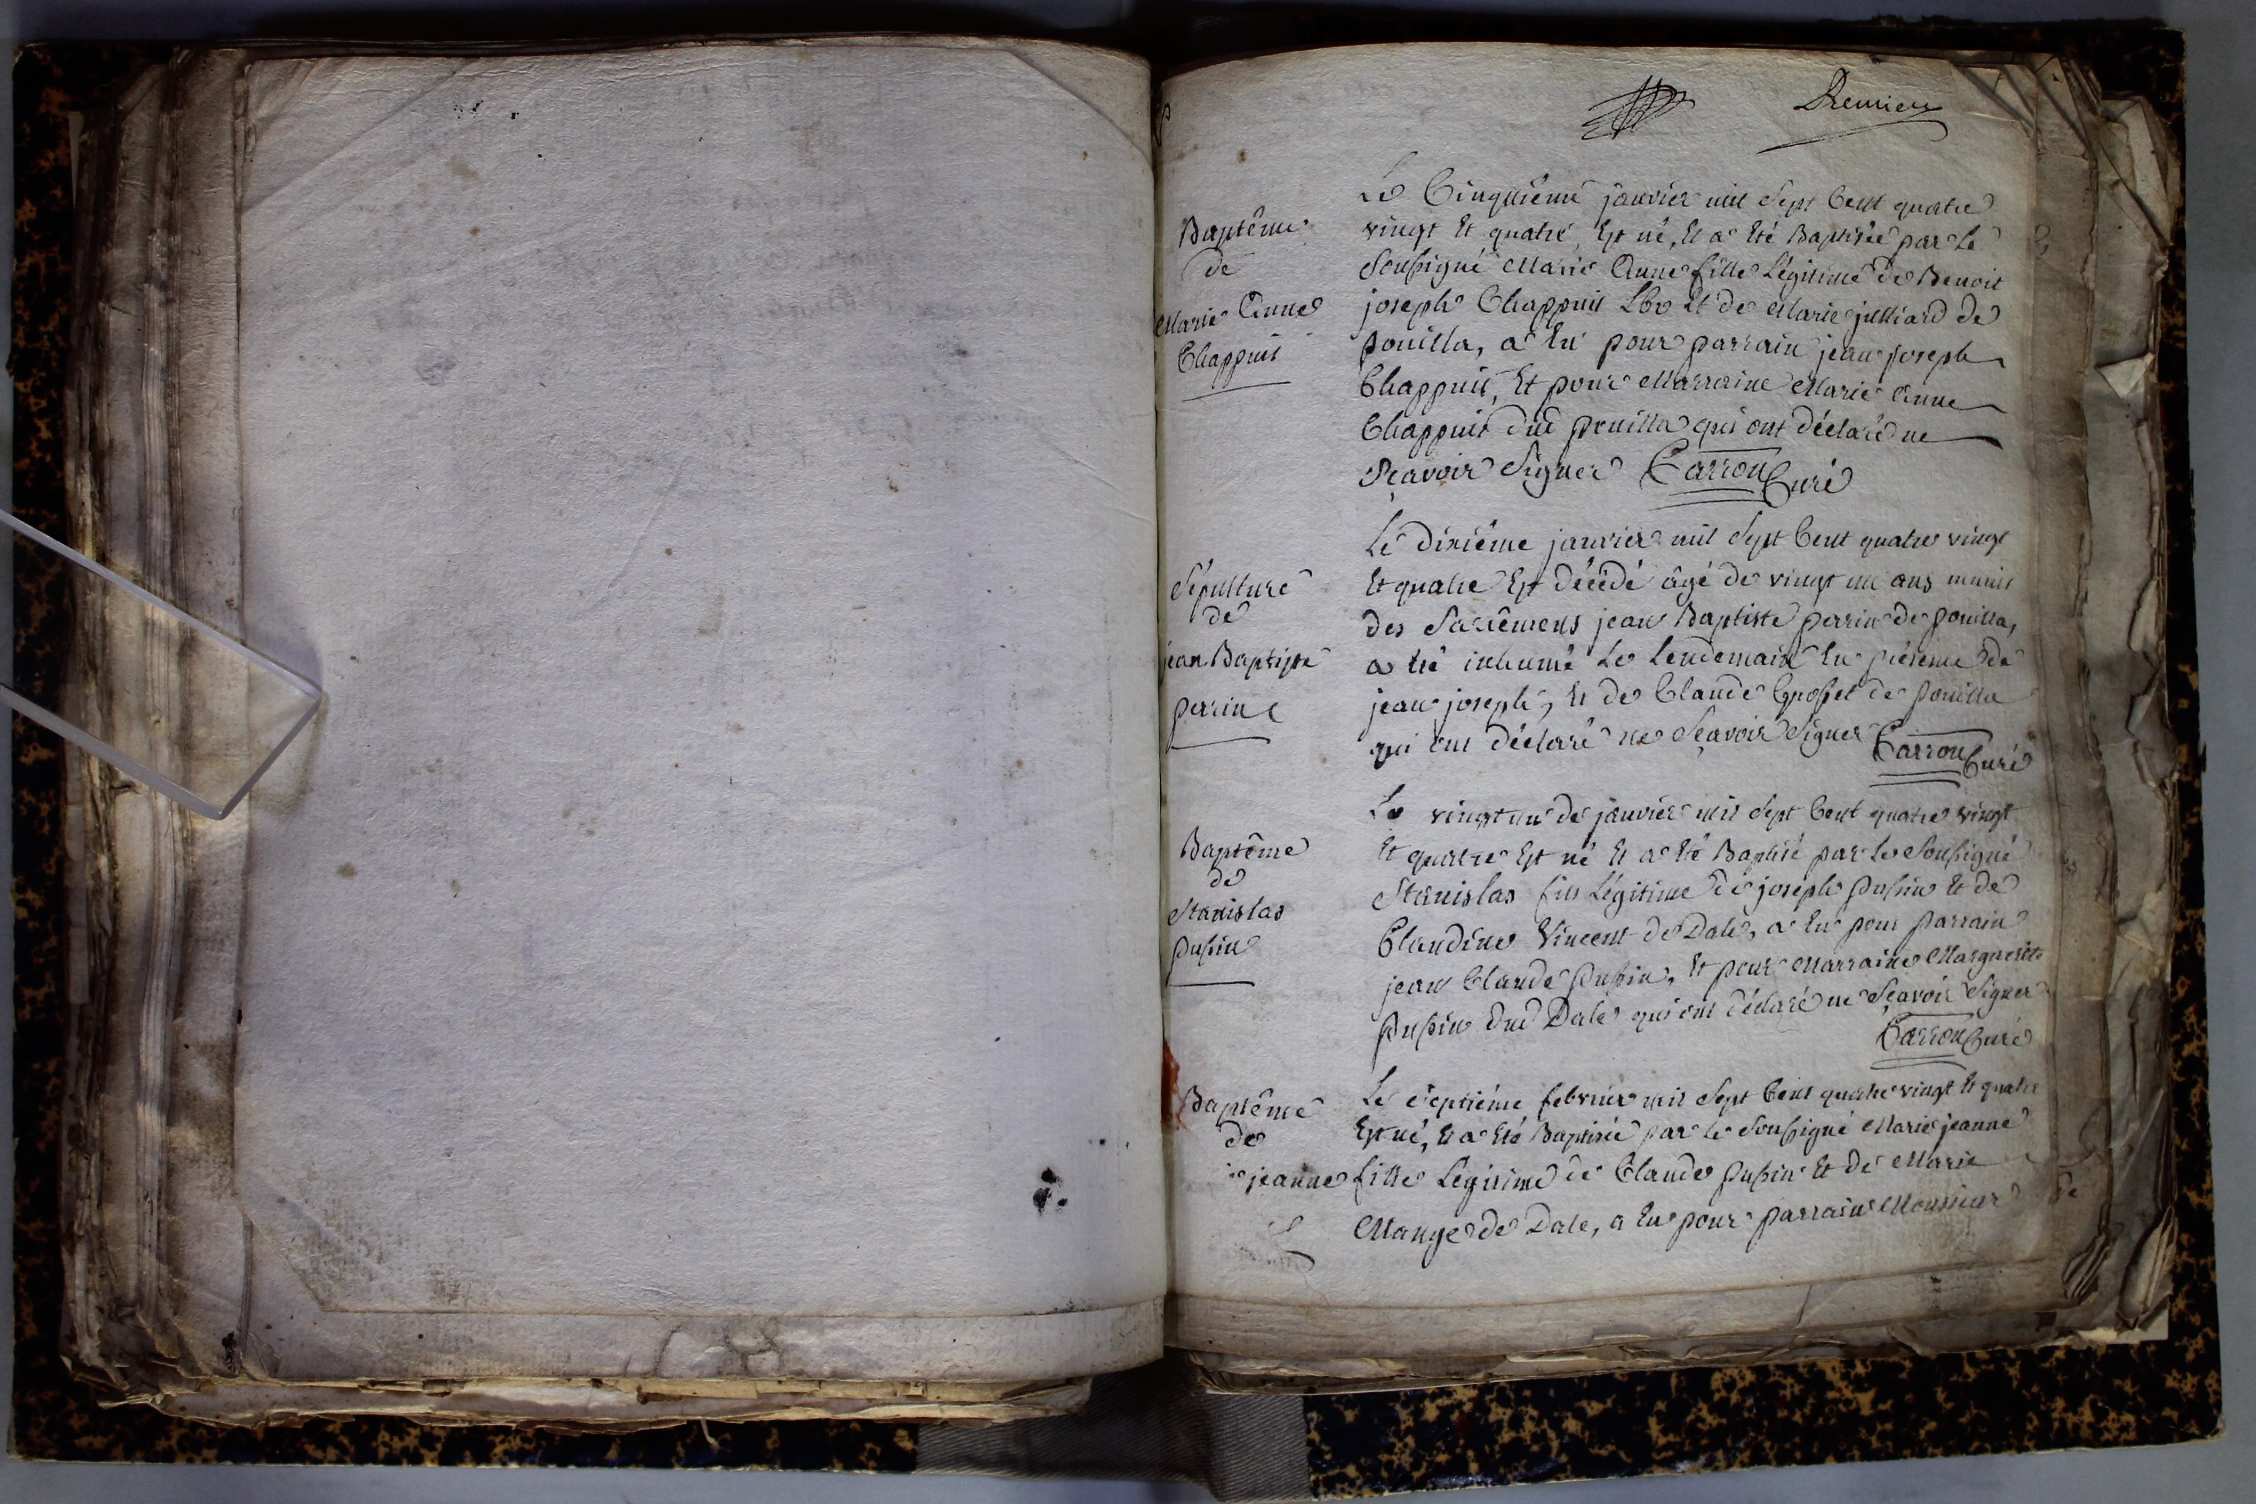 Premier
Baptême
de
Marie Anne
Chappuis
Le Cinquiême janvier mil Sept Cent quatre
vingt Et quatre, Est né, Et a Eté Baptisée par Le
Soussigné Marie Anne fille Légitime de Benoit
joseph Chappuis Et de Marie julliard de
pouilla, a Eu pour parrain jean joseph
Chappuis, Et pour Marraine Marie Anne
Chappuis dud pouilla qui ont déclaré ne
Sçavoir Signer Carron Curé
Sépulture
de
jean Baptiste
perrin
Le dixiême janvier mil Sept Cent quatre vingt
Et quatre Est décédé âgé de vingt un ans munis
des Sacrêmens jean Baptiste perrin de pouilla,
a été inhumé Le Lendemain En présence de
jean joseph, Et de Claude Grosset de pouilla
qui ont déclaré ne Sçavoir Signer Carron Curé
Baptême
de
Stanislas
Pussin
Le vingt un de janvier mil Sept Cent quatre vingt
Et quatre Est né Et a Eté Baptisé par Le Soussigné
Stanislas fils Légitime de joseph Pussin Et de
Claudine Vincent de Dale, a Eu pour Parrain
jean Claude Pussin, Et pour Marraine Marguerite
Pussin dud Dale qui ont déclaré ne Sçavoir Signer
Carron Curé
Baptême
de
jeanne
Le Septiéme febvrier mil Sept Cent quatre vingt Et quatre
Est né, Et a Eté Baptisée par Le Soussigné Marie jeanne
fille Légitime de Claude Pussin Et de Marie
Mange de Dale, a Eu pour parrain Monsieur